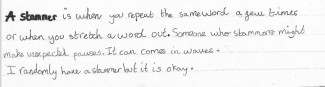 A stammer is when you repeat the same word a few times
or when you stretch a word out. Someone who stammers might
make unexpected pauses. It can comes in waves.
I randomly have a stammer but it is okay.